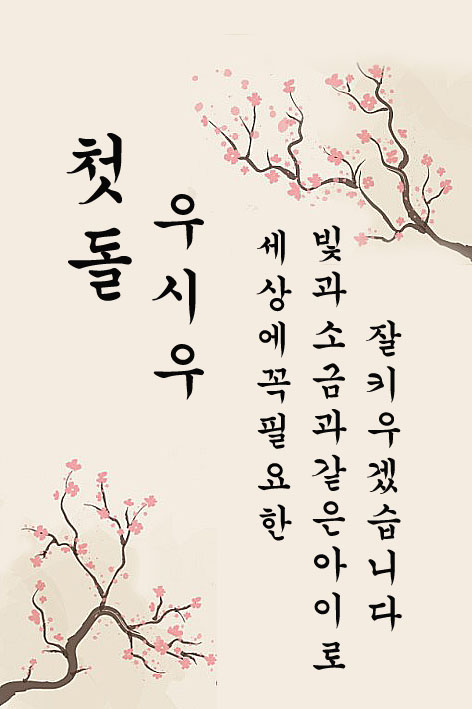 첫돌
우시우
세상에꼭필요한
빛과소금과같은아이로
잘키우겠습니다